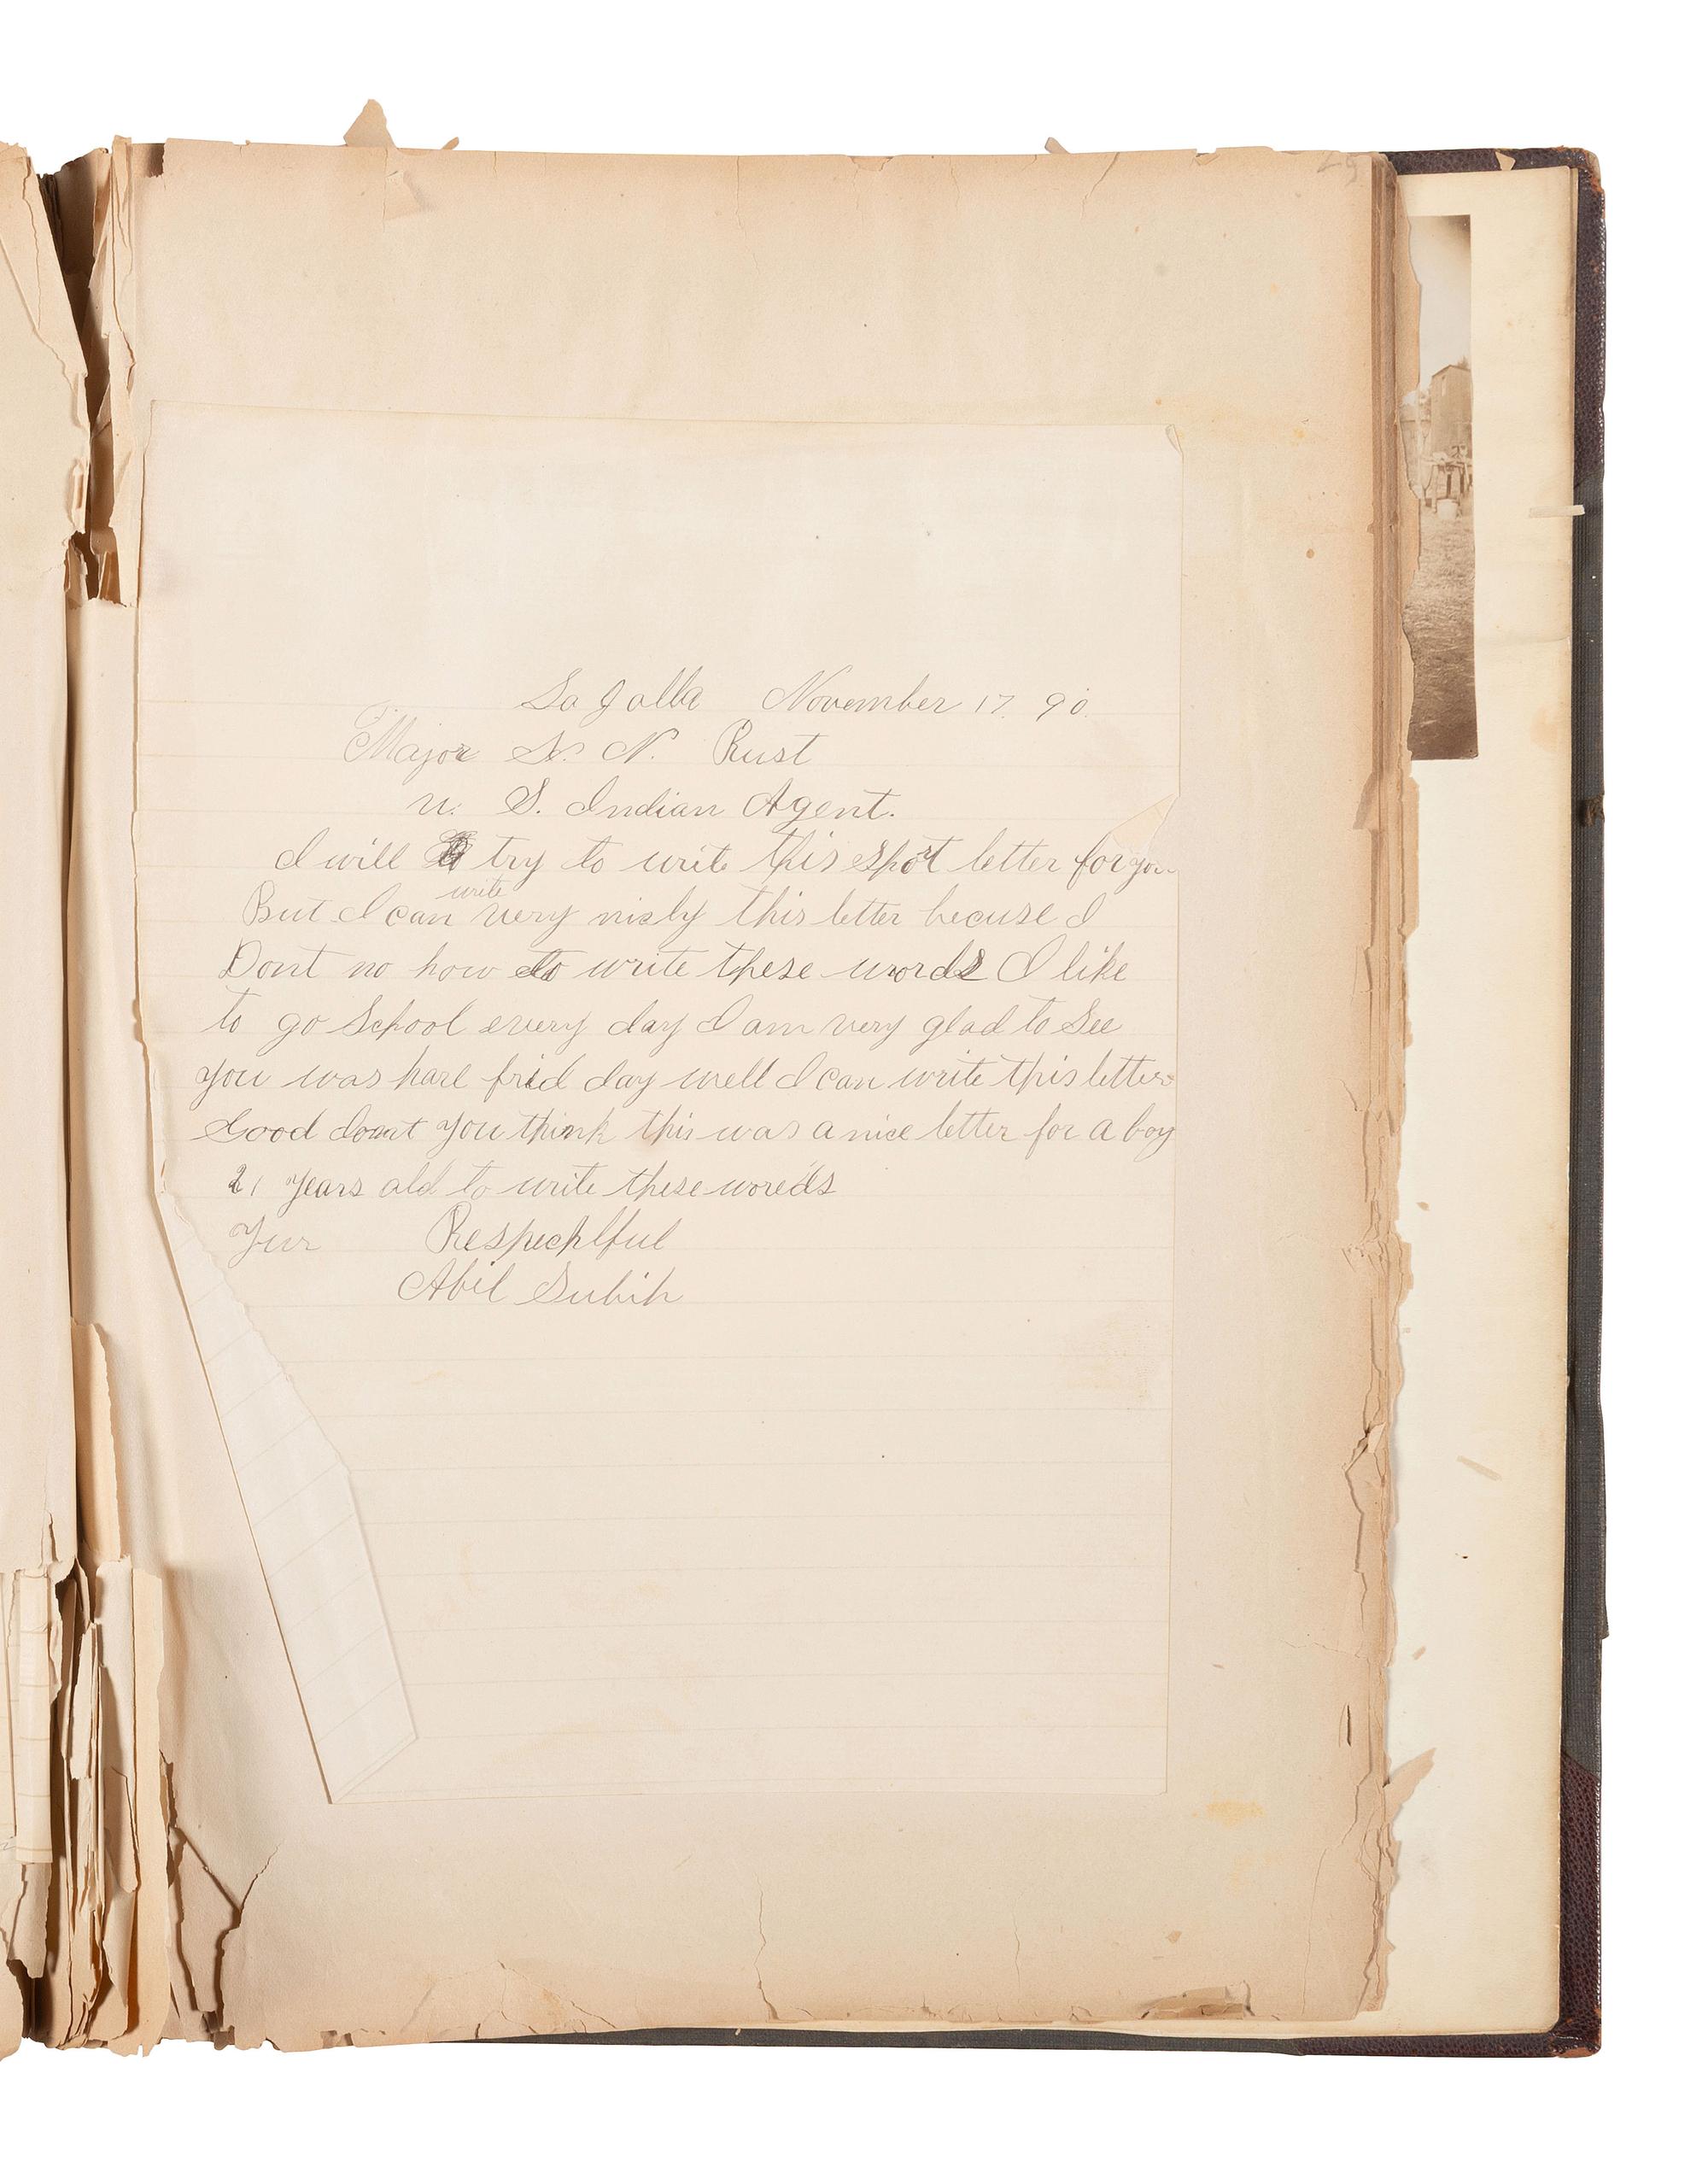 La Jolla November 17. 90
Major H. N. Rust
U. S. Indian Agent.
I will try to write this short letter for you
write
But I can very nisly this letter becuse I
Dont no how to write these words I like
to go School every day I am very glad to See
you was hare frid day well I can write this letter
Good doant you think this was a nice letter for a boy
21 years old to write these woreds
Yur Respechlful
Abil Subih